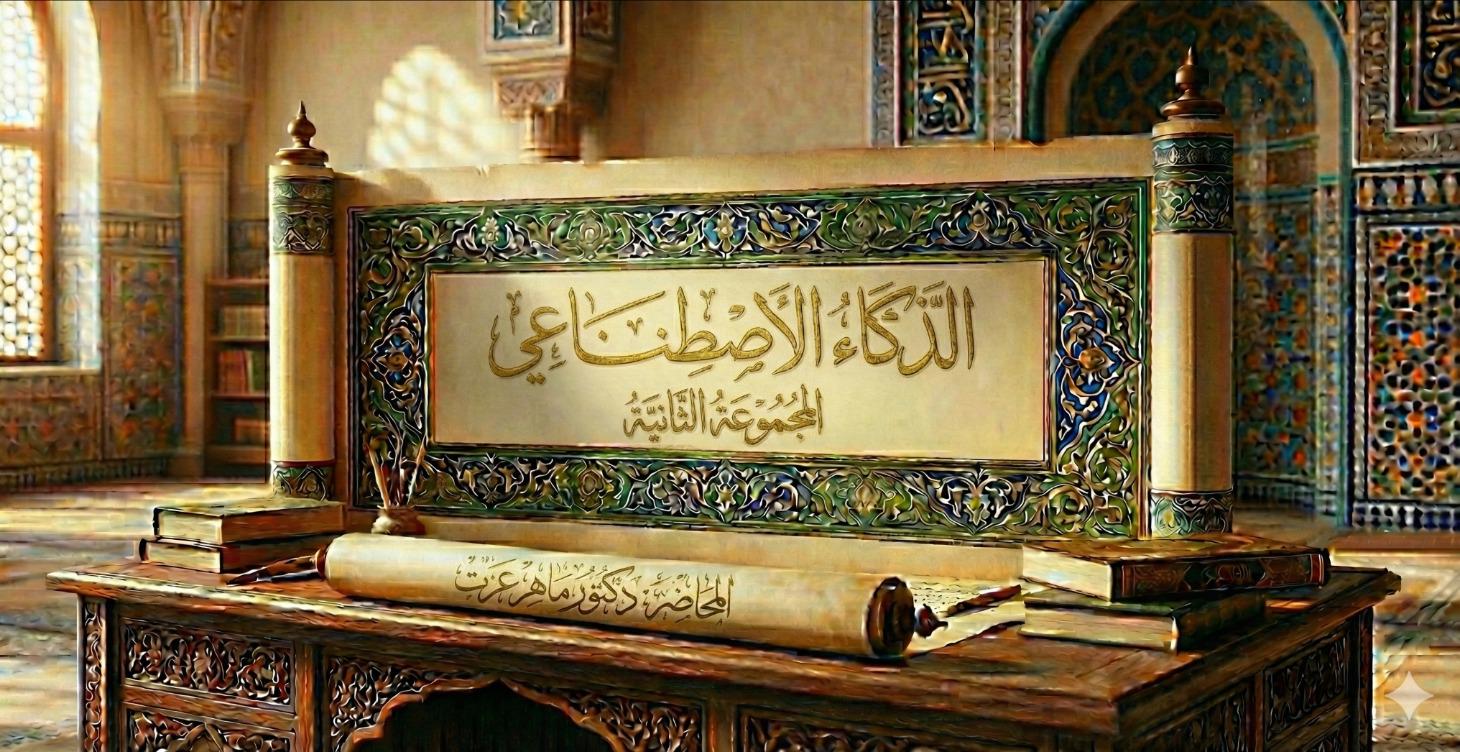 الذَّكَاءُ الْأَصْطِنَاعِي
الْمَجْمُوعَةُ الثَّانِيَّةُ
المحَاضِرَ دكتُور مَاهِر عَزَت